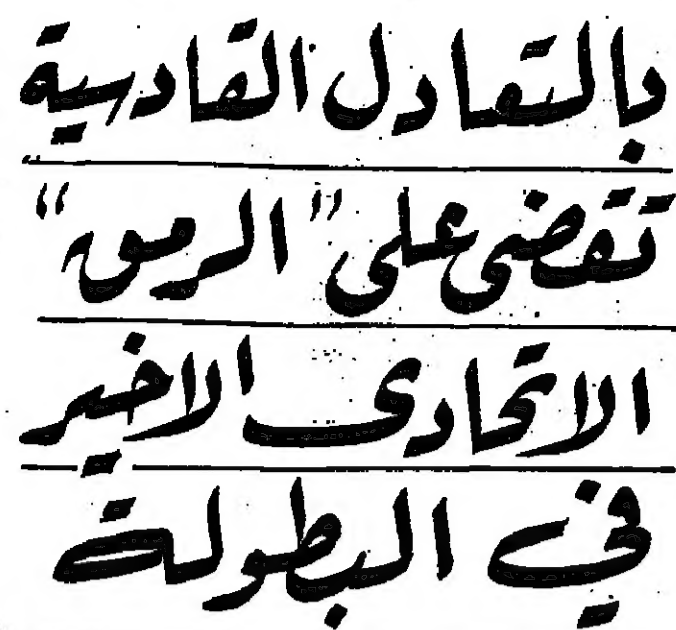 بالتعادل القادسية
تقضى على "الرمق"
الاتحادى الاخير
في البطولة